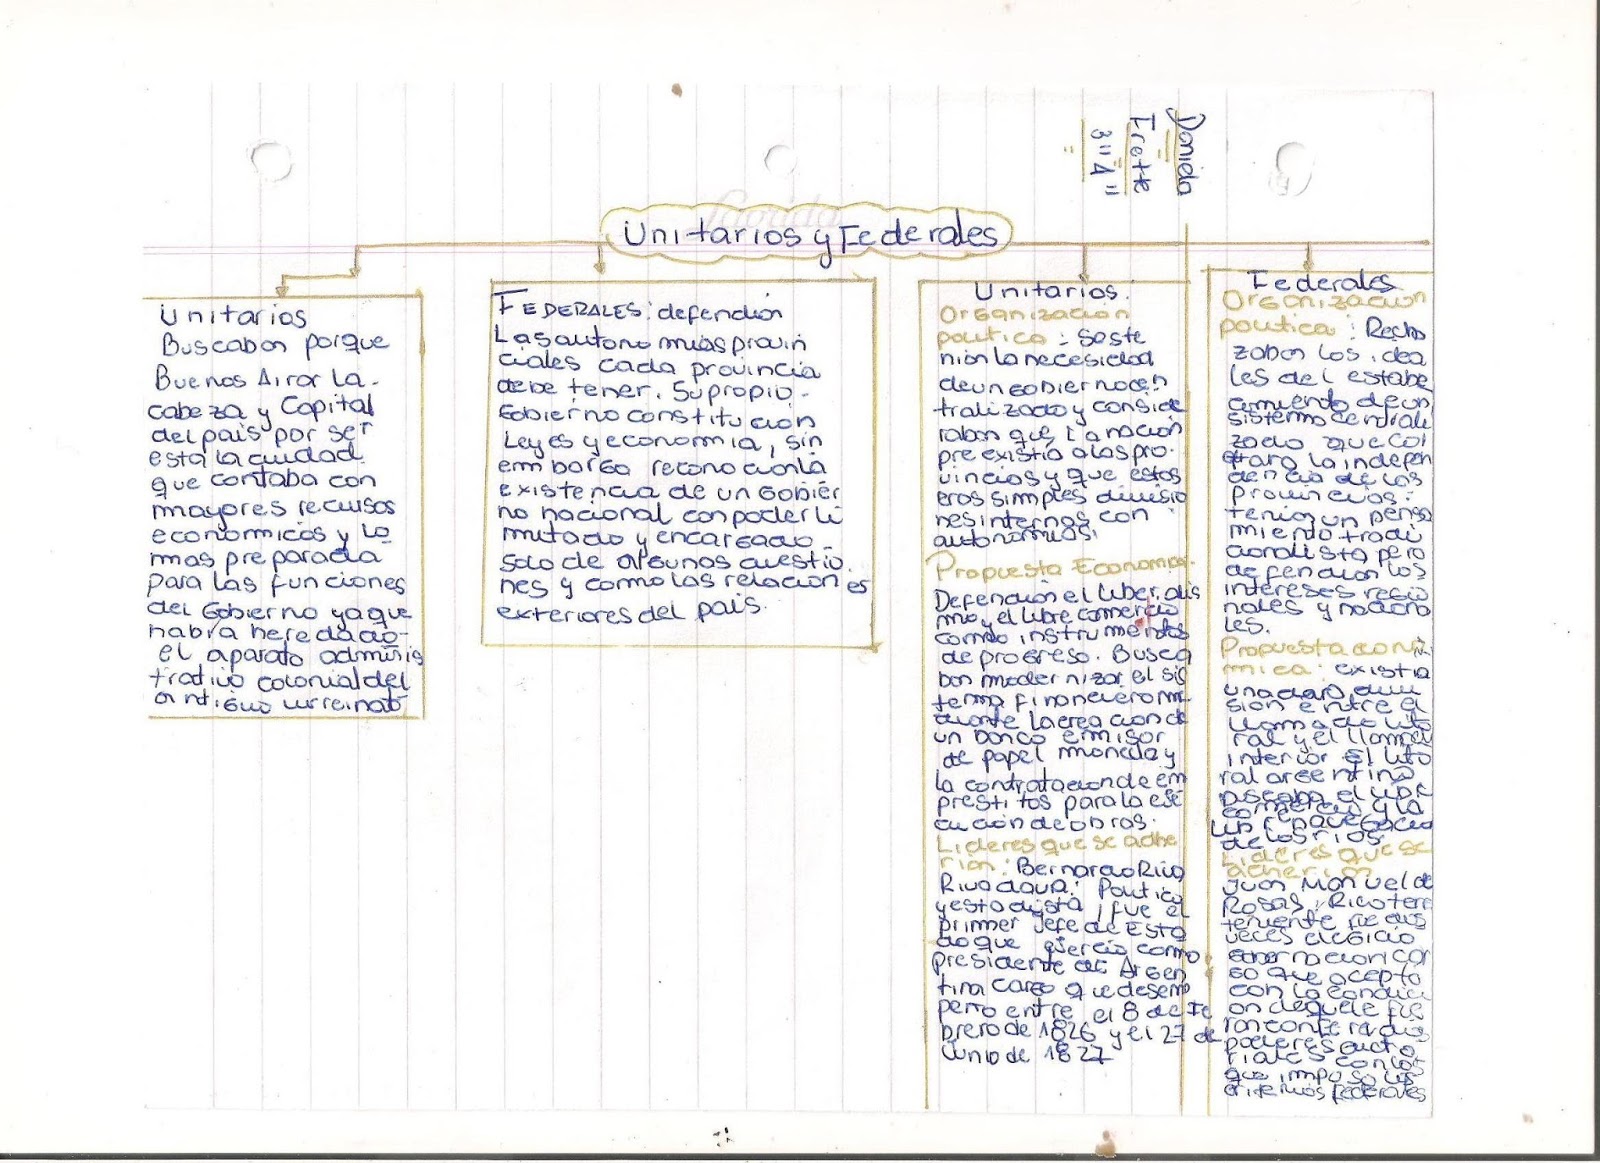 Daniela
Frette
3" "A"
Unitarios y Federales
Unitarios
Buscaban porque
Buenos Airor la
cabeza y Capital
del pais por ser
esta la ciudad
que contaba con
mayores recursos
economicos y la
mas preparada
para las funciones
del Gobierno ya que
habia heredado
el aparato adminis
trativo colonial del
antiguo virreinato
FEDERALES: defendian
Las autonomias provin
ciales cada provincia
debe tener. Su propio
Gobierno constitucion
Leyes y economia, sin
embargo reconocian la
existencia de un Gobier
no nacional con poder li
mitado y encargado
solo de algunas cuestio
nes y como las relaciones
exteriores del pais.
Unitarios.
Organizacion
politica: Soste
nian la necesidad
de un gobierno cen
tralizado y conside
raban que la nacion
pre existia a las pro
vincias y que estas
eras simples divisio
nes internas con
autonomias.
Propuesta Economas.
Defendian el liberalis
mo y el libre comercio
como instrumentos
de progreso. Busca
ban modernizar el sis
tema financiero me
diante la creacion de
un banco emisor
de papel moneda y
la contratacion de em
prestitos para la eje
cucion de obras.
Lideres que se adhe
rian: Bernardo Riva
Rivadavia: Politico
y estadista, fue el
primer Jefe de Esta
do que ejercio como
presidente de Argen
tina cargo que desem
peño entre el 8 de Fe
brero de 1826 y el 27 de
Junio de 1827
Federales
Organizacion
politica: Recha
zaban los idea
les del estable
cimiento de un
sistema centrali
zado que coi
la indepen
dencia de las
provincias.
tenian un pensa
miento tradi
cionalista pero
defendian los
intereses regio
nales y naciona
les.
Propuesta
mica: existia
una clara divi
sion entre el
llamado lito
ral y el llamado
interior El lito
ral argentino
buscaba el libre
comercio y la
libre navegacion
de los rios.
Lideres que se
adherian
Juan Manuel de
Rosas, Rico terra
teniente fue dos
veces elegido
go que acepto
con la condici
on de que le fue
ran conferidos
poderes dicta
riales con los
que impuso los
criterios federales